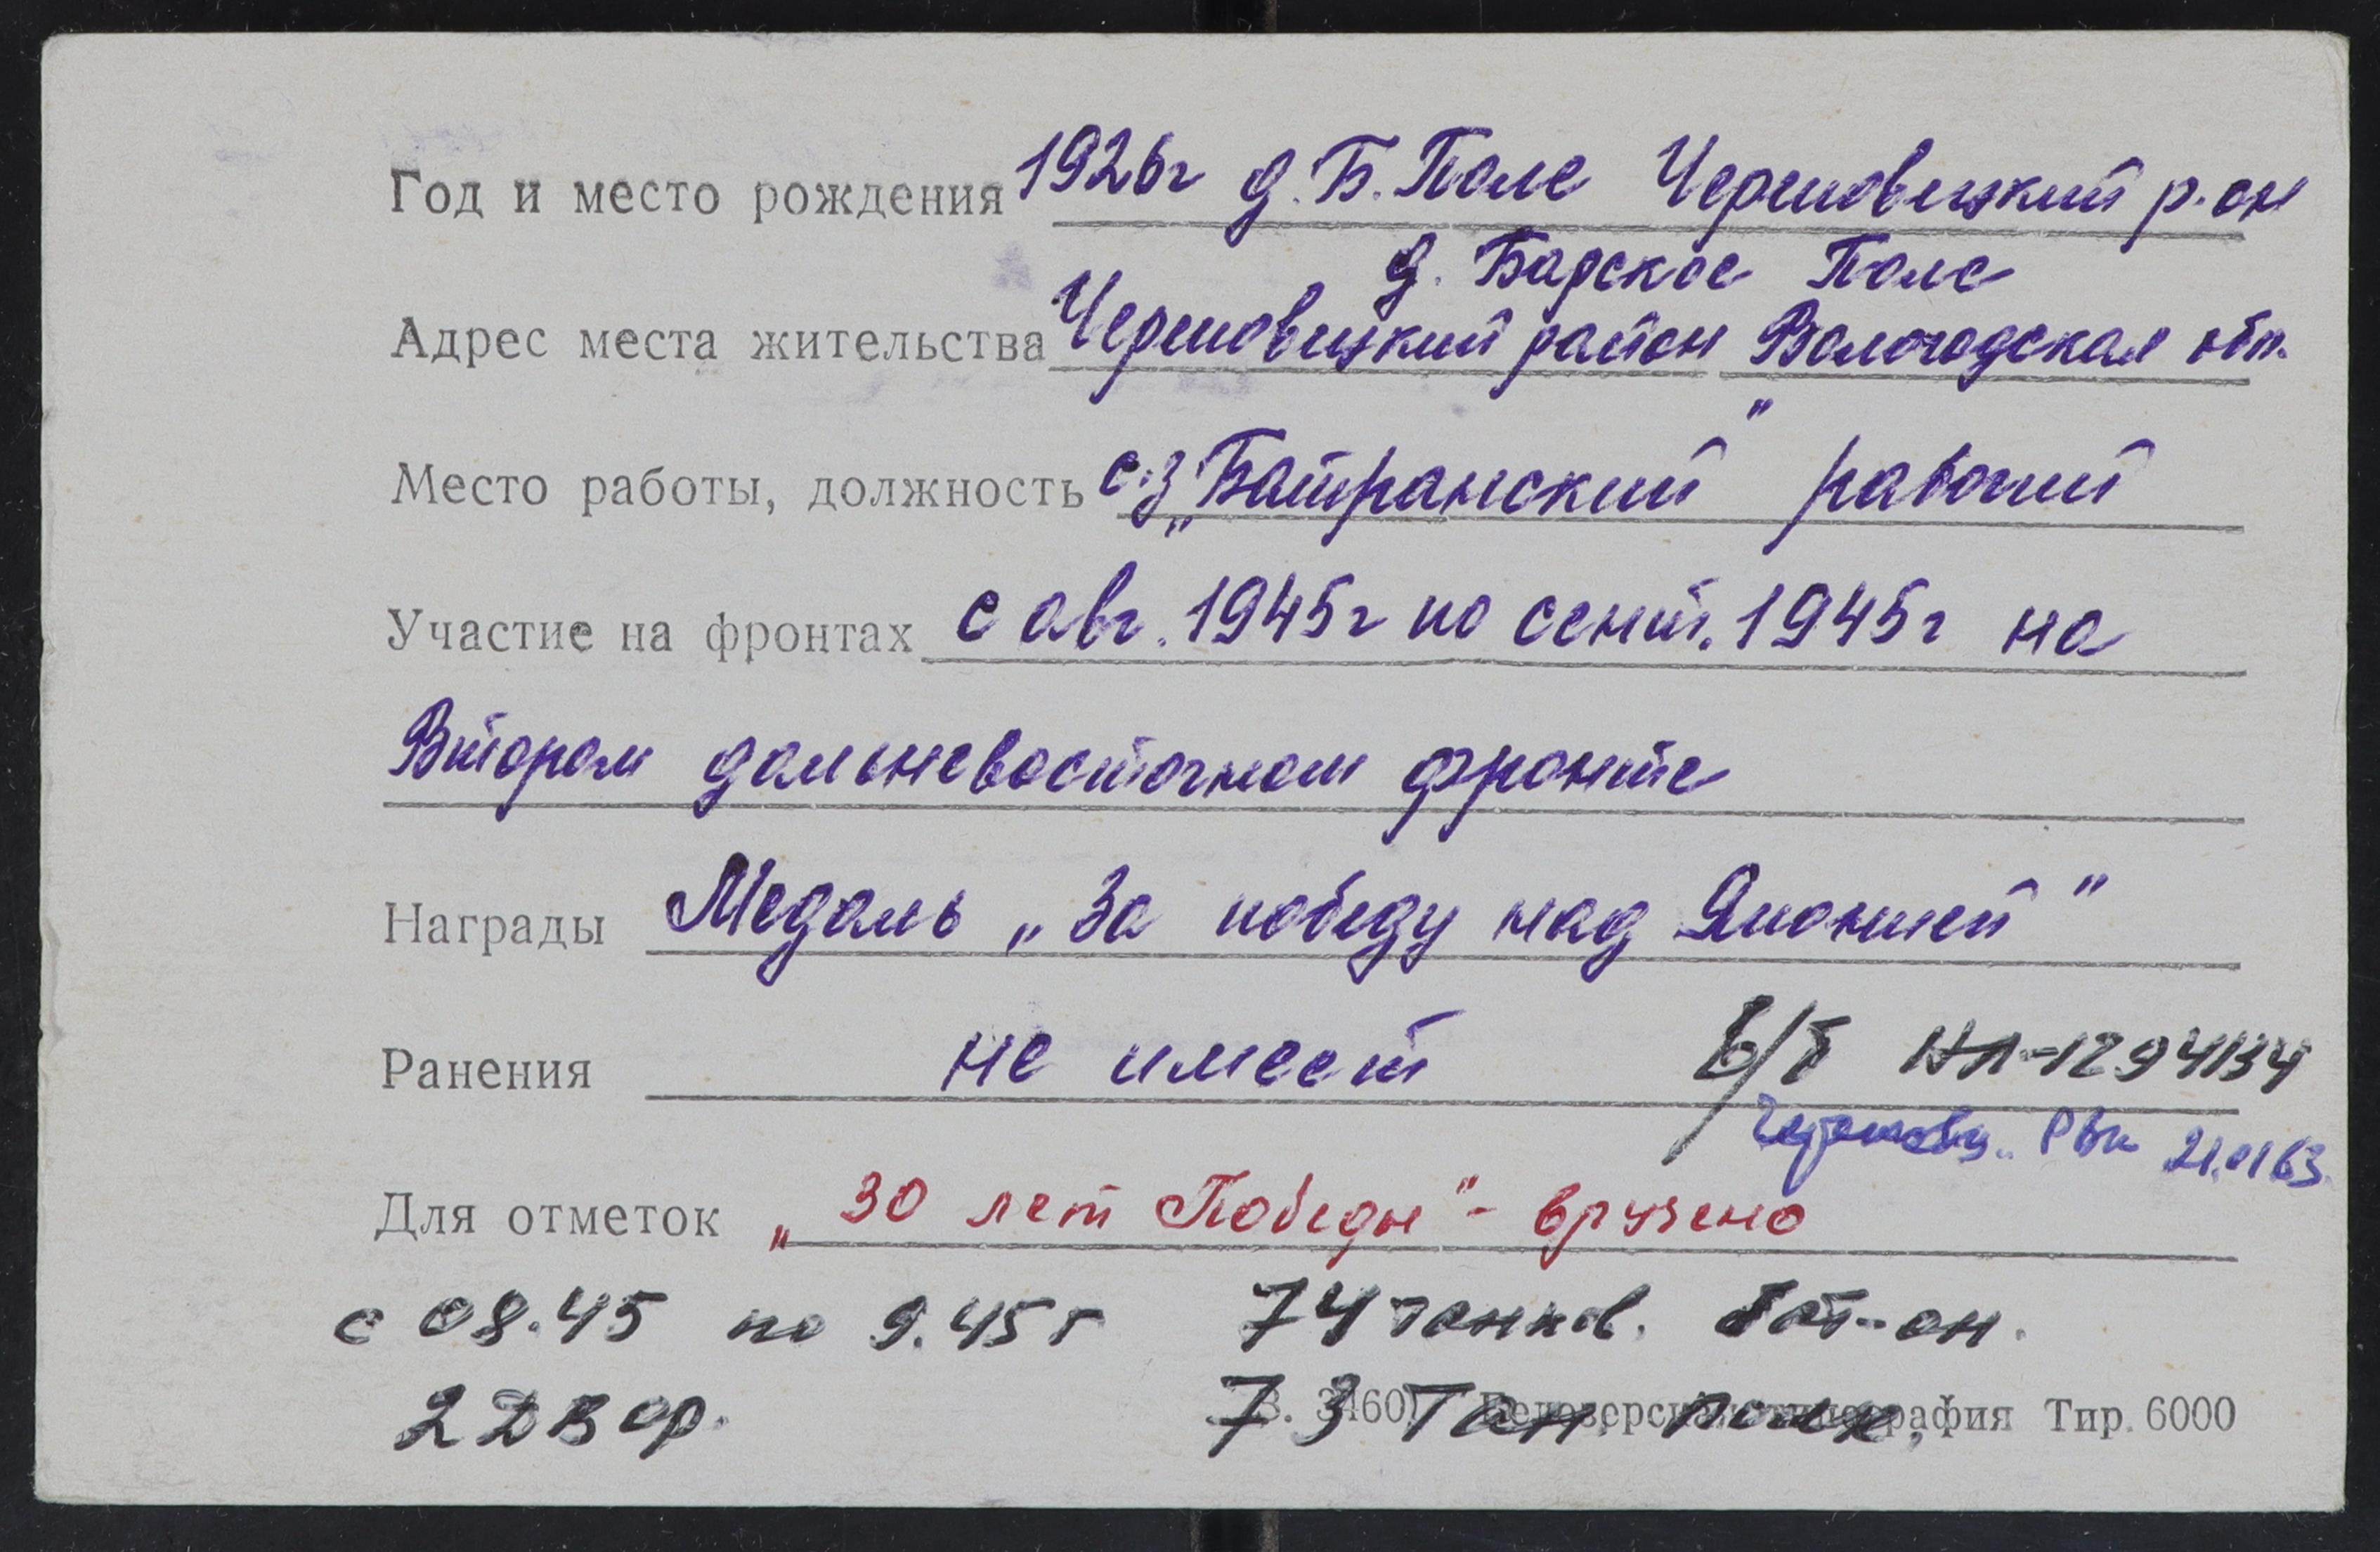 Год и место рождения 1926г д. Б. Поле Череповецкий р-он
д. Барское Поле
Адрес места жительства Череповецкий район Вологодская обл.
Место работы, должность с-з „Батранский" рабочий
Участие на фронтах с авг. 1945г по сент. 1945г на
Втором дальневосточном фронте
Награды Медаль „За победу над Японией"
Ранения не имеет В/б НЛ-1294134
Череповец. РВК 21.01.63.
Для отметок „30 лет Победы" - вручено
с 08.45 по 9.45 г 74 танков. бат-он.
2 ДВ фр. 73 Тан. полк,
З. 3460 Белозерская типография Тир. 6000